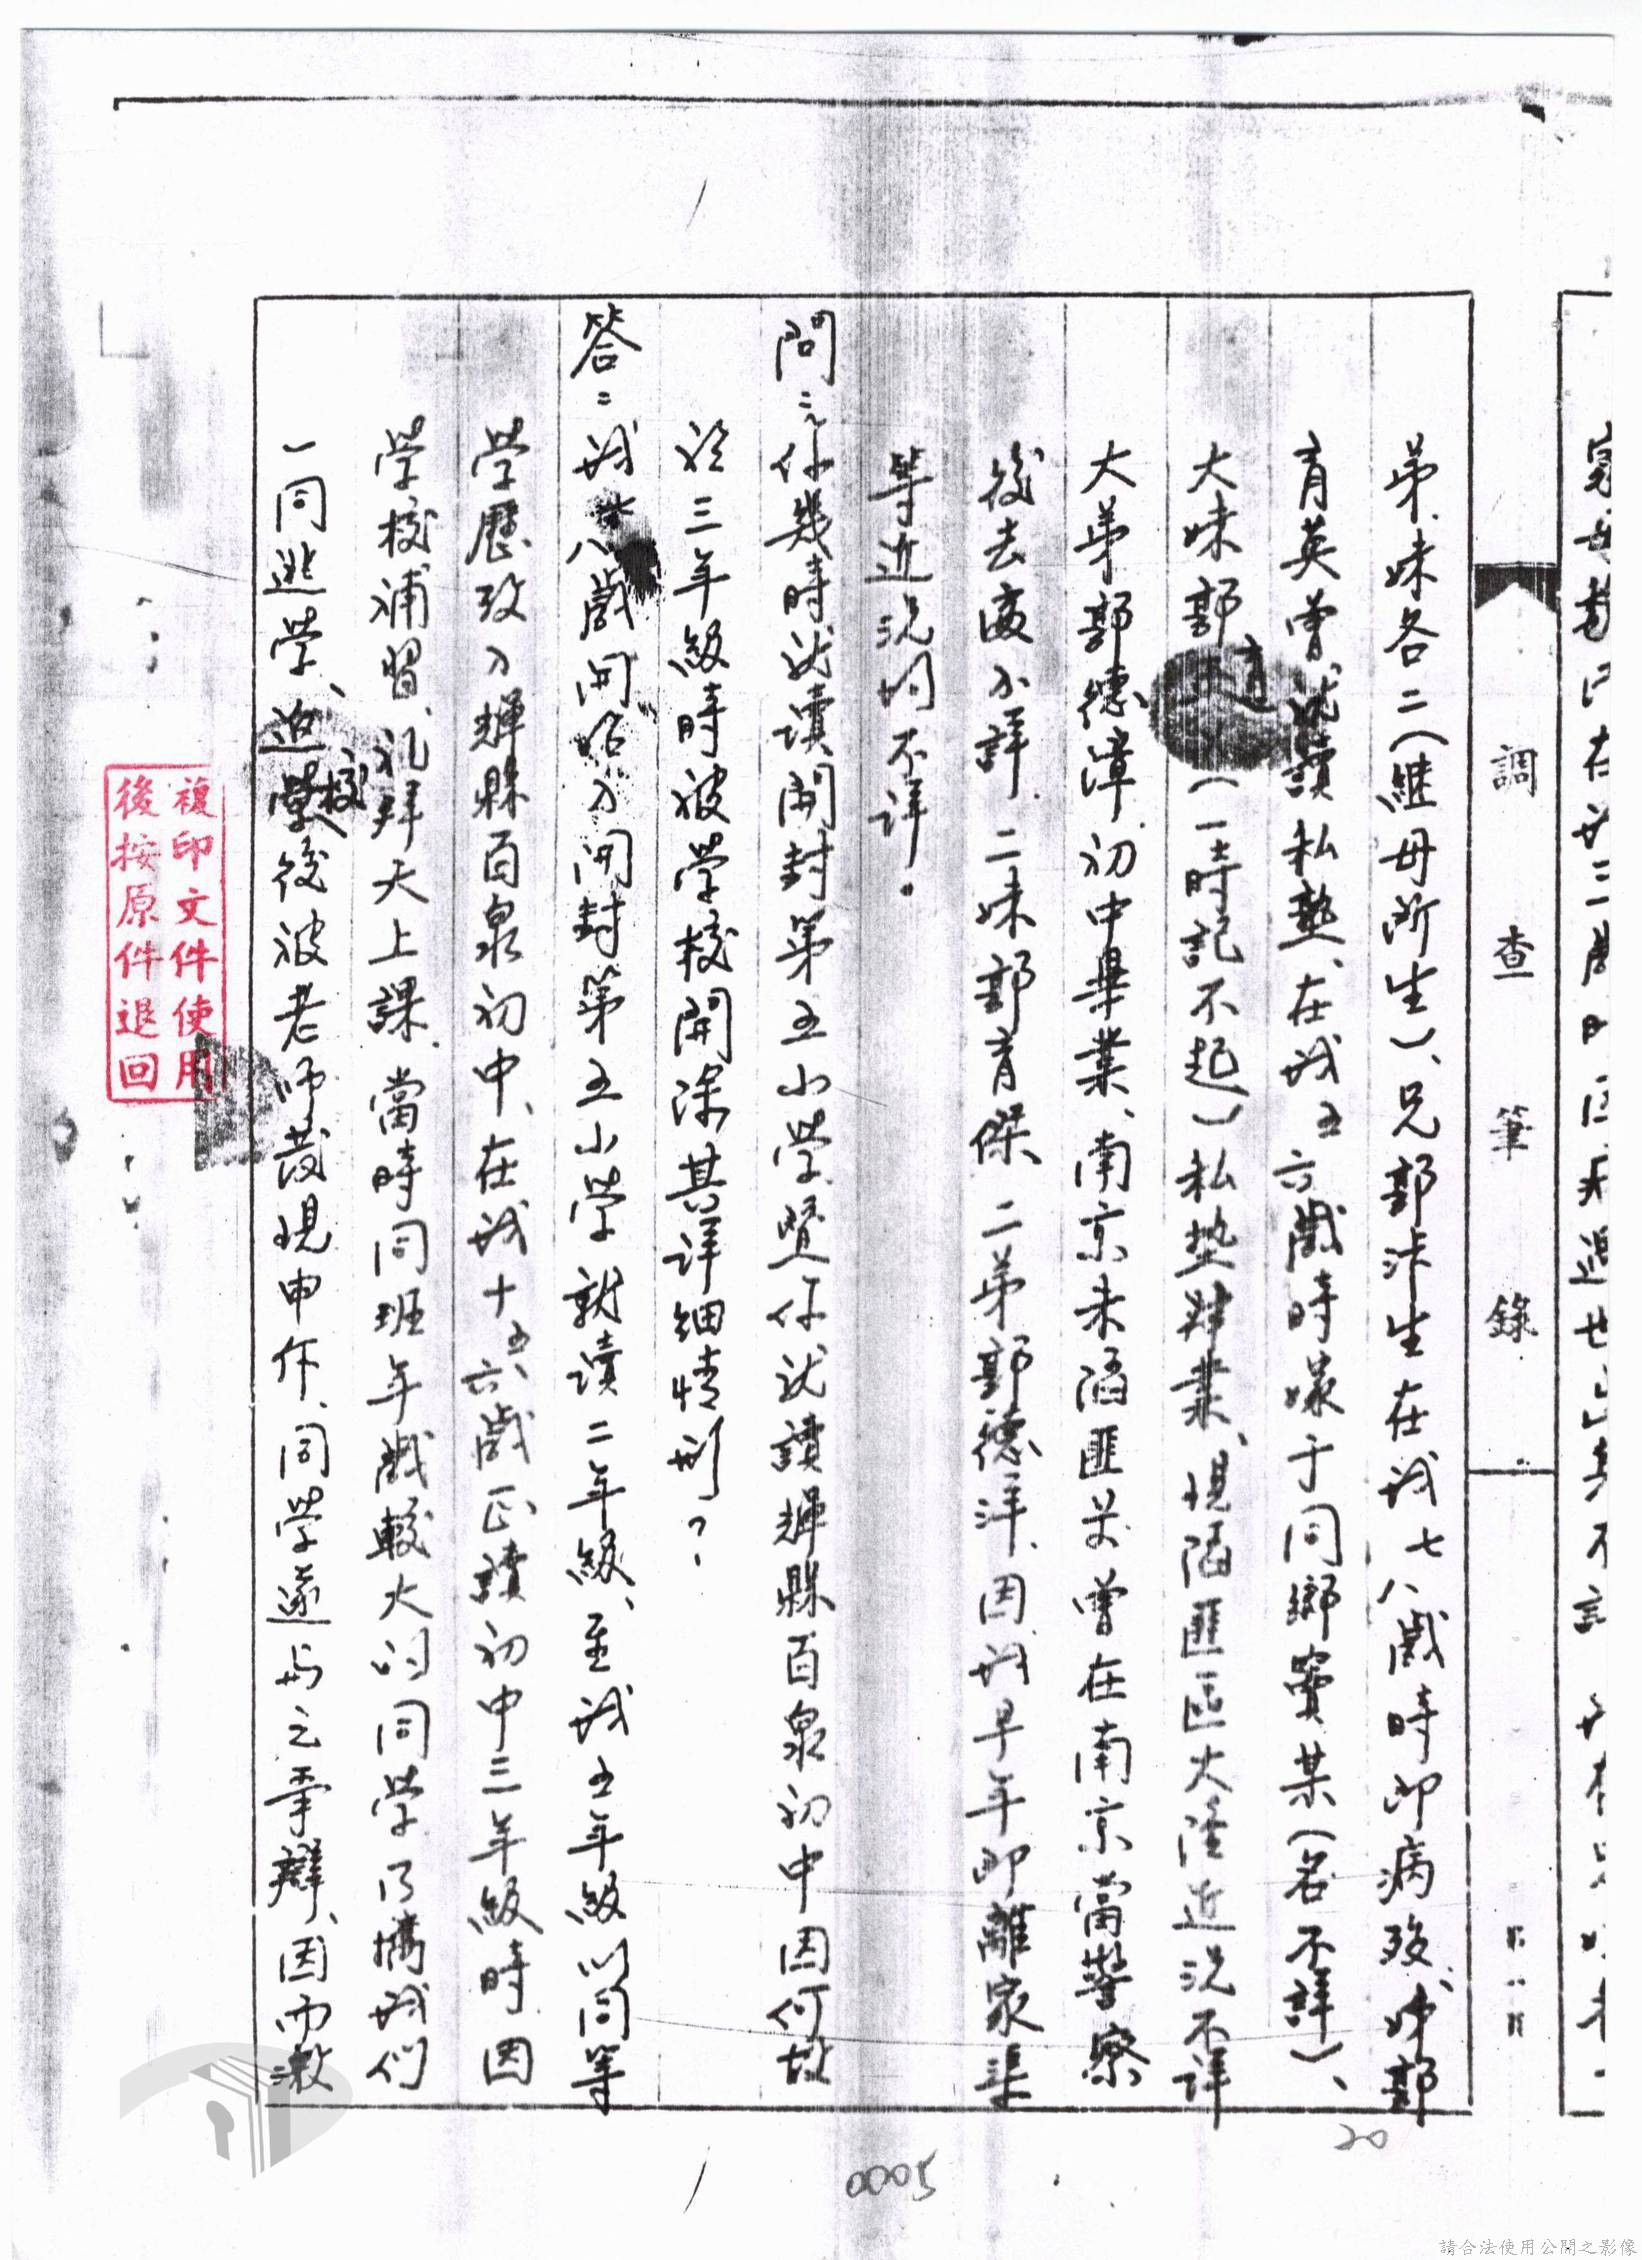 調查筆錄
弟妹各二（繼母所生）、兄郭泮生在我七八歲時即病歿、姊郭
育英曾就讀私塾、在我五六歲時嫁于同鄉竇某（名不詳）、
大妹郭育（一時記不起）私塾肄業、現陷匪區大陸近況不詳
大弟郭德漳初中畢業、南京未陷匪前曾在南京當警察
後去處不詳 二妹郭育傑 二弟郭德洋、因我早年即離家渠
等近況均不詳。
問：你幾時就讀開封第五小學暨你就讀輝縣百泉初中因何故
於三年級時被學校開除其詳細情形？
答：我八歲開始入開封第五小學就讀二年級、至我五年級以同等
學歷攷入輝縣百泉初中、在我十五六歲正讀初中三年級時因
學校補習、礼拜天上課、當時同班年歲較大的同學乃攜我們
一同逃學、返校後被老師發現申斥、同學遂与之爭辯、因而激
複印文件使用
後按原件退回
20
0005
請合法使用公開之影像